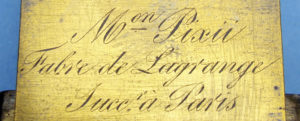 Mon Pixii
Fabre de Lagrange
Succr. à Paris